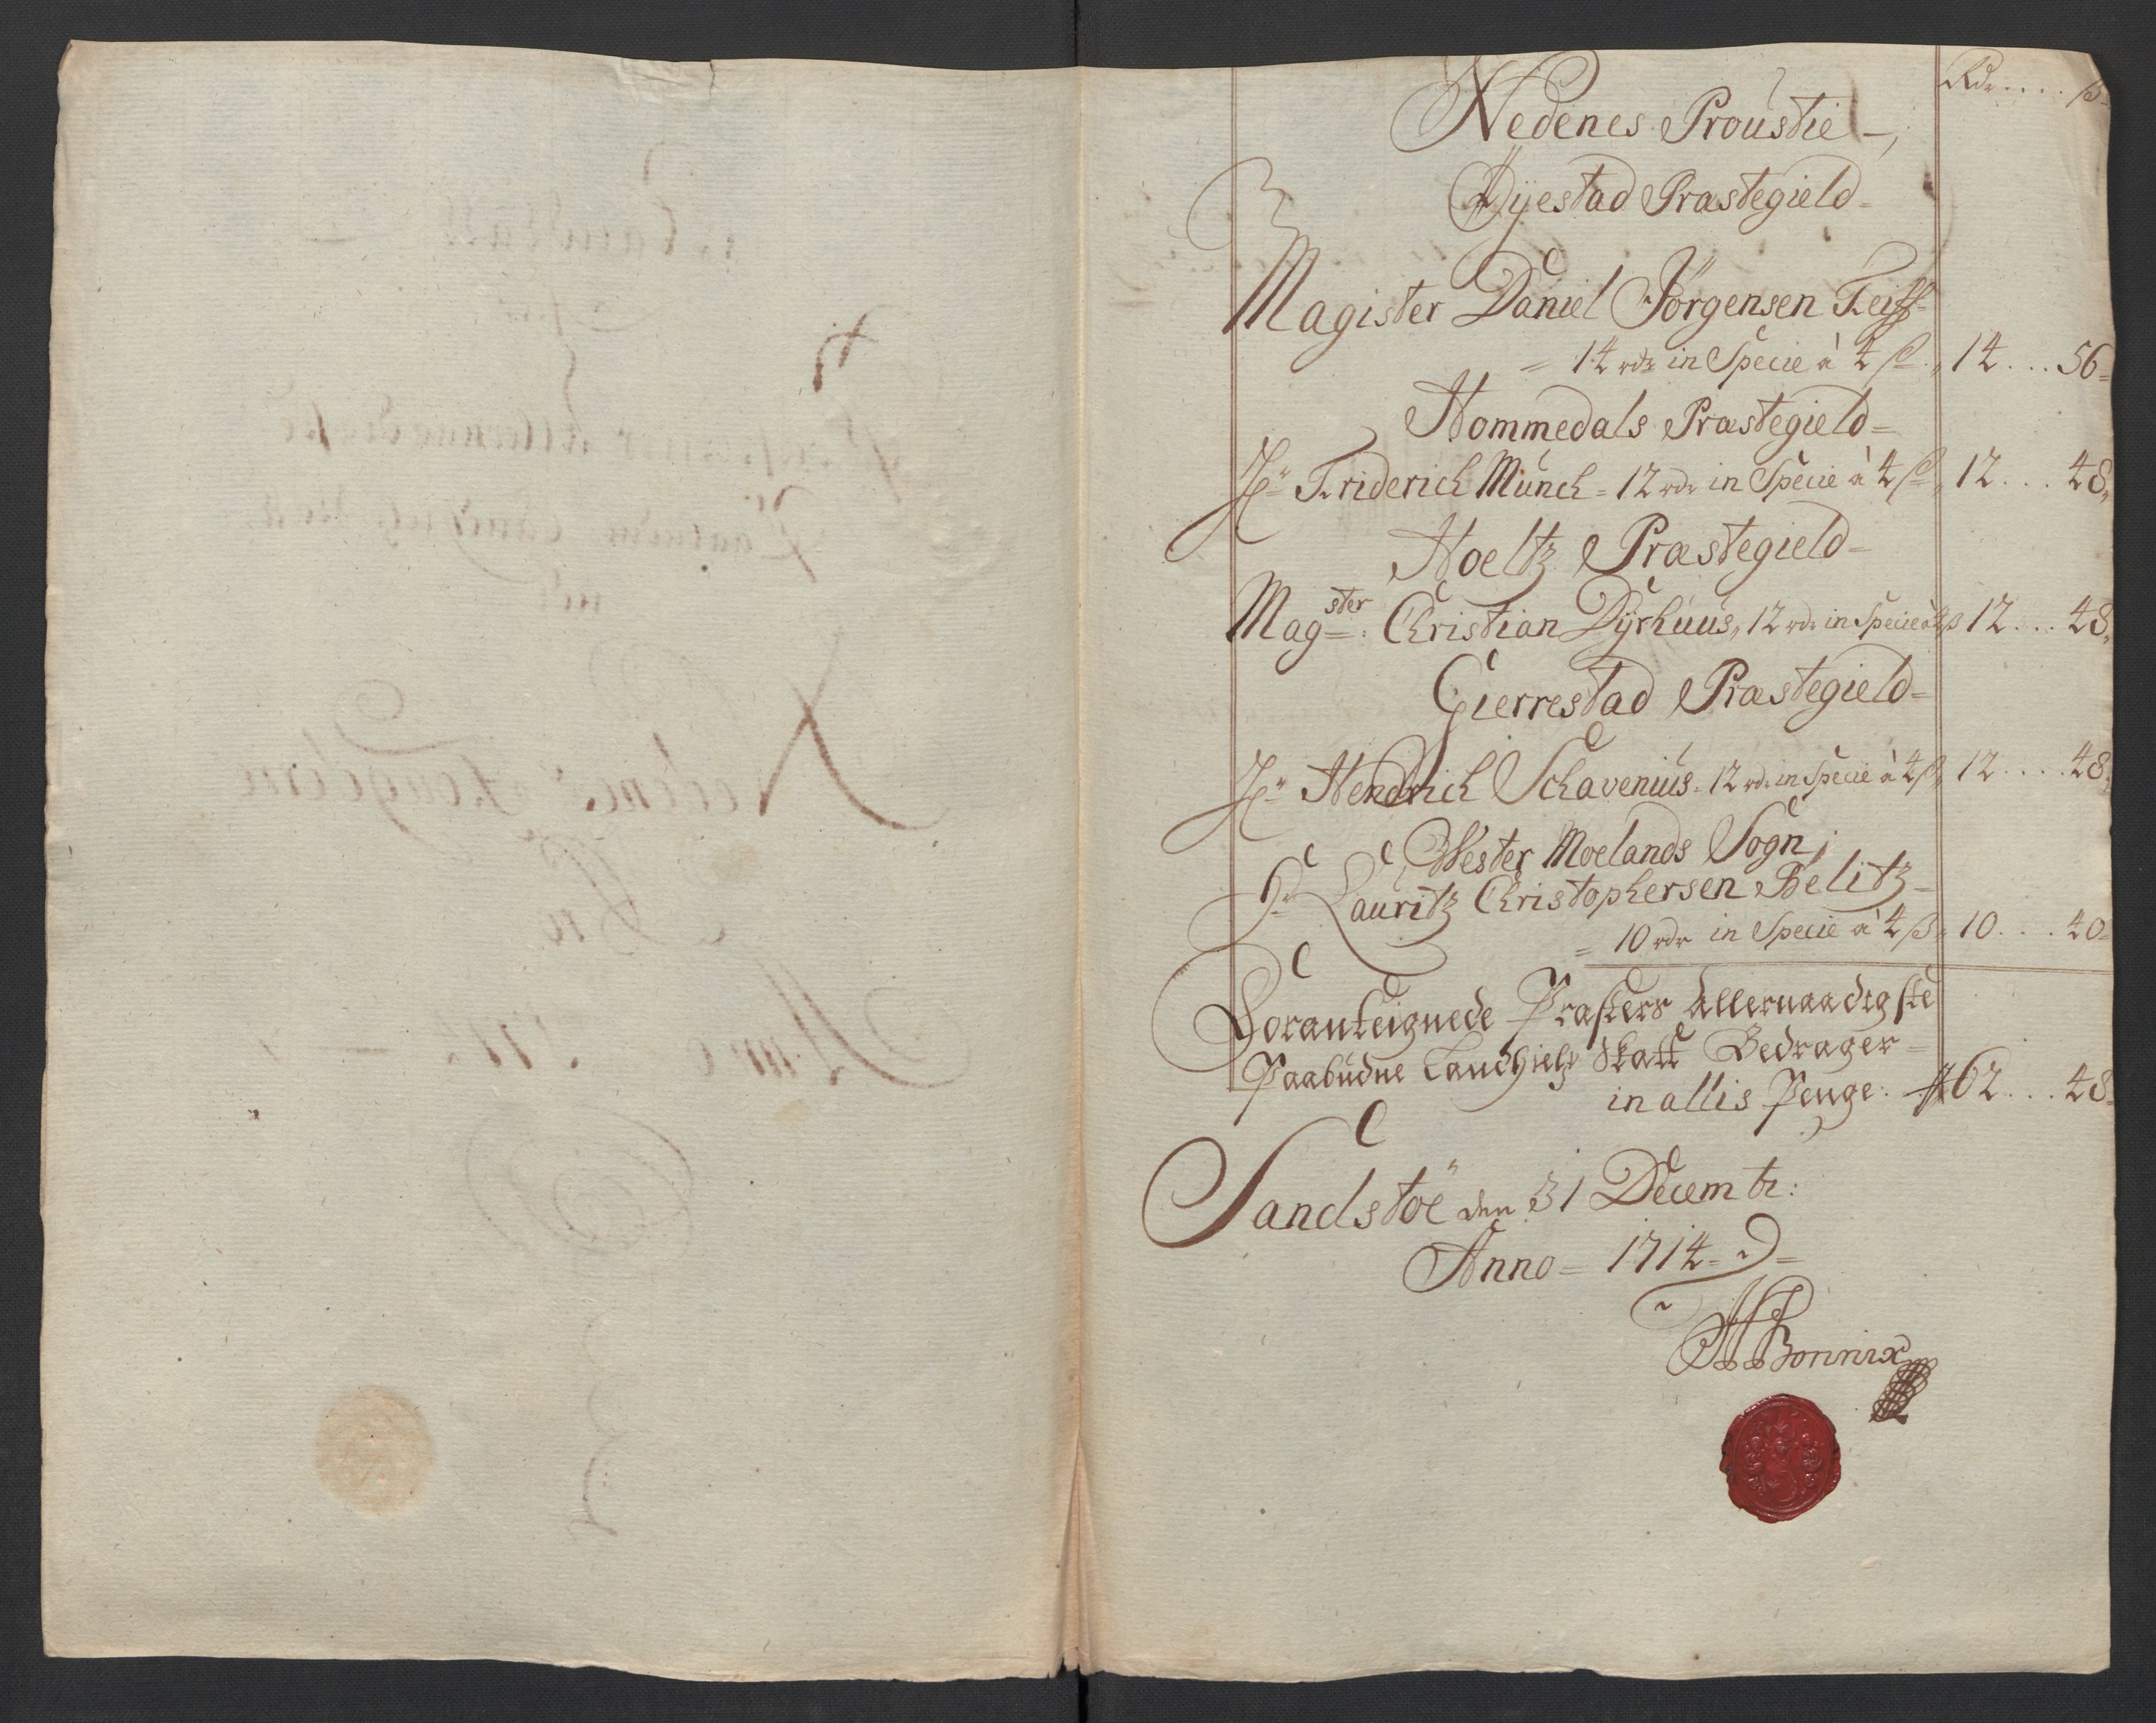 Rdr .... ß
Nedenes Proustie -,
Øyestad Præstegield =
Magister Daniel Jørgensen Feiff =
= 14 rdr in Specie à 4 ß. 14 ... 56 =
Hommedals Præstegield =
Hr Friderich Münch = 12 rdr in Specie à 4 ß, 12 ... 48,
Hoeltz Præstegield =
Magster: Christian Dyrhuus, 12 rdr in Specie à 4 ß 12 ... 48,
Gierrestad Præstegield =
Hr Hendrich Schavenius = 12 rdr in Specie à 4 ß, 12 .... 48,
Wester Moelands Sogn;
Hr Lauritz Christophersen Belitz =
= 10 rdr in Specie à 4 ß, 10 ... 40 =
Foranteignede Præsters Allernaadigste
Paabudne Landhielp Skatt Bedrager =
in allis Penge: 62 ... 48
Sandstöe den 31 Decembr:
Anno = 1714 =
Bonnix